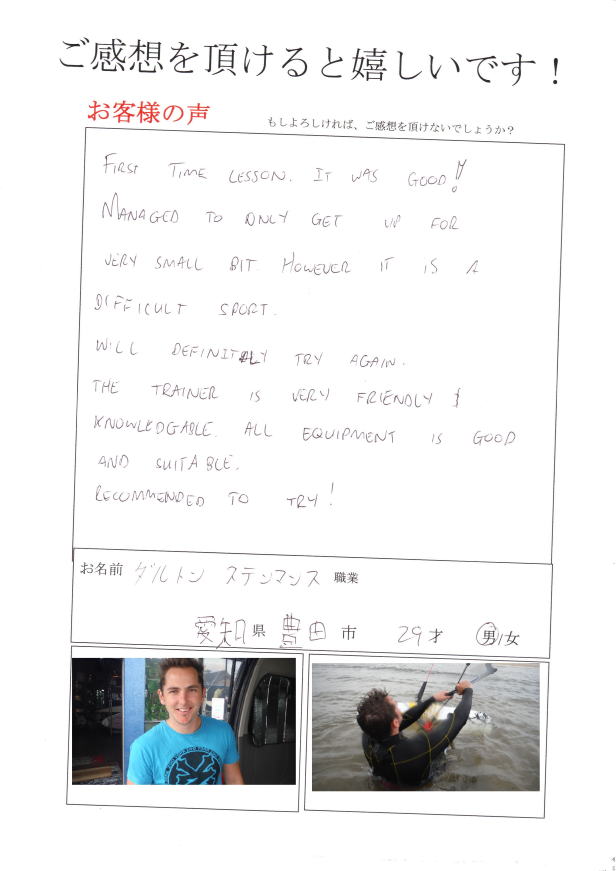 ご感想を頂けると嬉しいです！
お客様の声
もしよろしければ、ご感想を頂けないでしょうか？
FIRST TIME LESSON. IT WAS GOOD!
MANAGED TO ONLY GET UP FOR
VERY SMALL BIT. HOWEVER IT IS A
DIFFICULT SPORT.
WILL DEFINITELY TRY AGAIN.
THE TRAINER IS VERY FRIENDLY &
KNOWLEDGABLE. ALL EQUIPMENT IS GOOD
AND SUITABLE.
RECOMMENDED TO TRY!
お名前 ダルトン ステンマンス 職業
愛知県 豊田市 29才 男/女